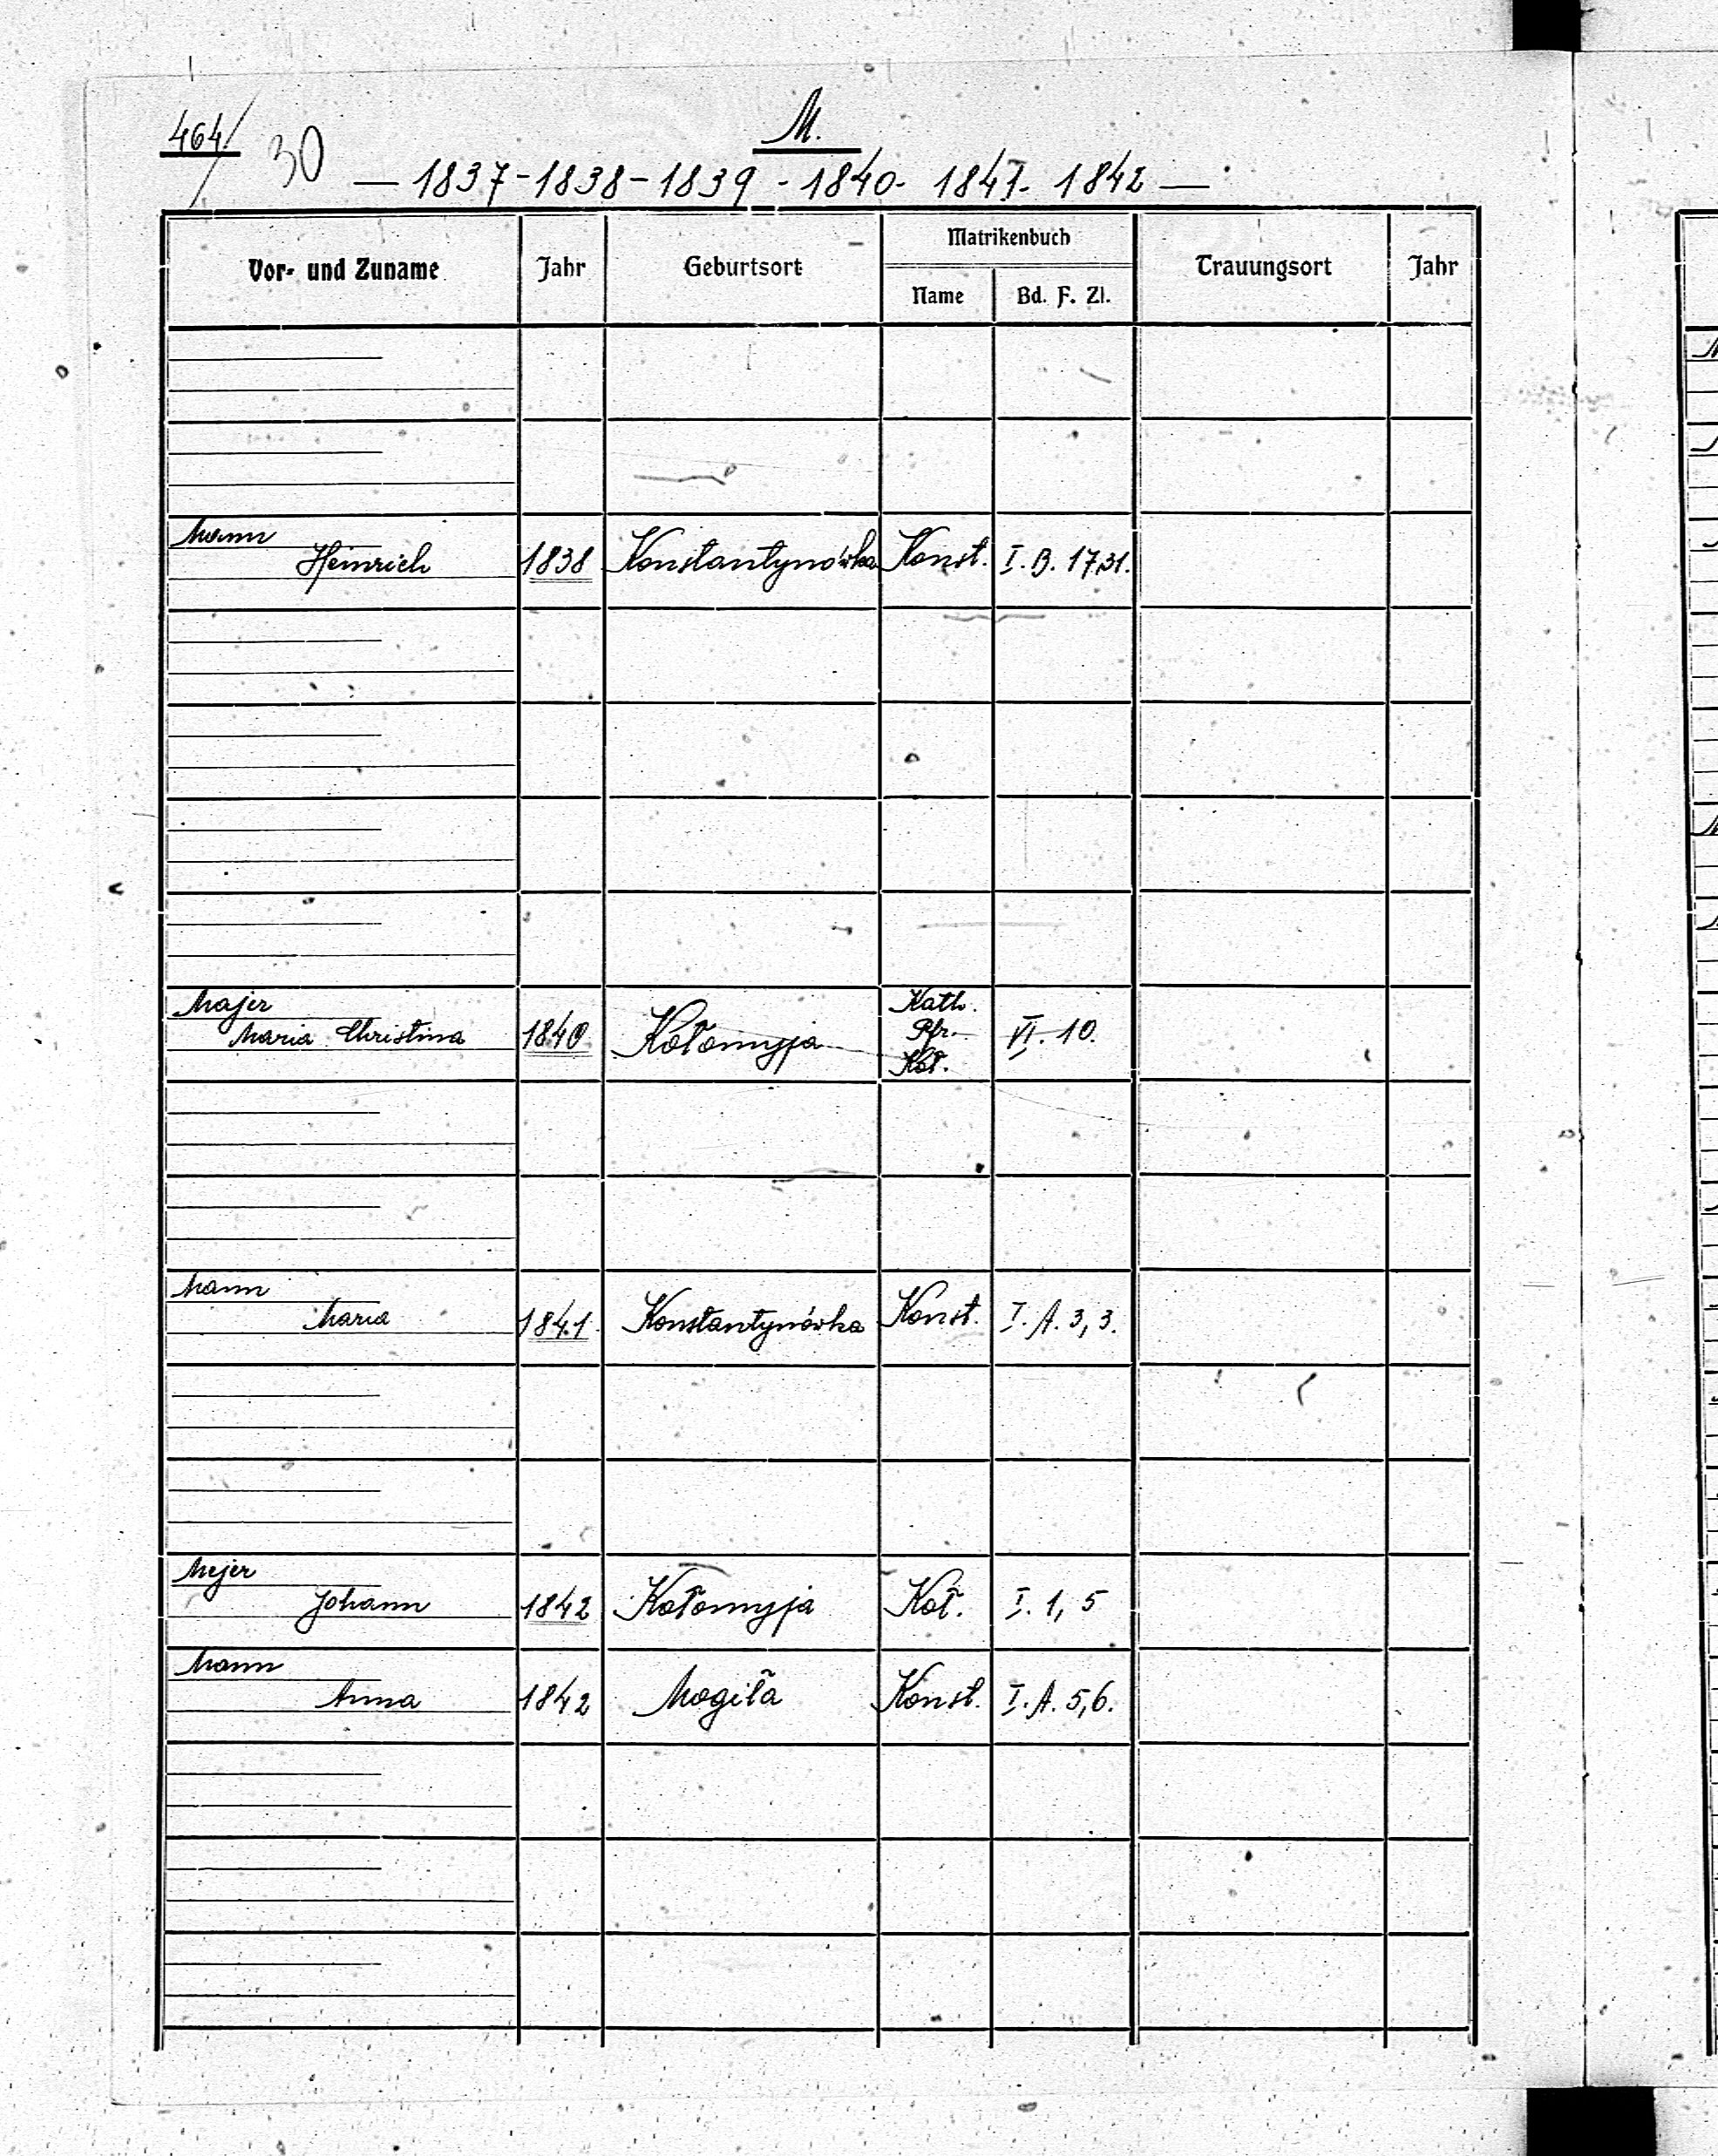 464/ 30 M.
— 1837-1838-1839 - 1840- 1841- 1842 —
Vor- und Zuname Jahr Geburtsort Matrikenbuch Trauungsort Jahr
Name Bd. F. Zl.
Mann
Heinrich 1838 Konstantynówka Konst. I. B. 17,31.
Majer Kath.
Maria Christina 1840 Kołomyja Pfr. VI. 10.
Koł.
Mann
Maria 1841 Konstantynówka Konst. I. A. 3, 3.
Mejer
Johann 1842 Kołomyja Koł. I. 1, 5
Mann
Anna 1842 Mogiła Konst. I. A. 5,6.